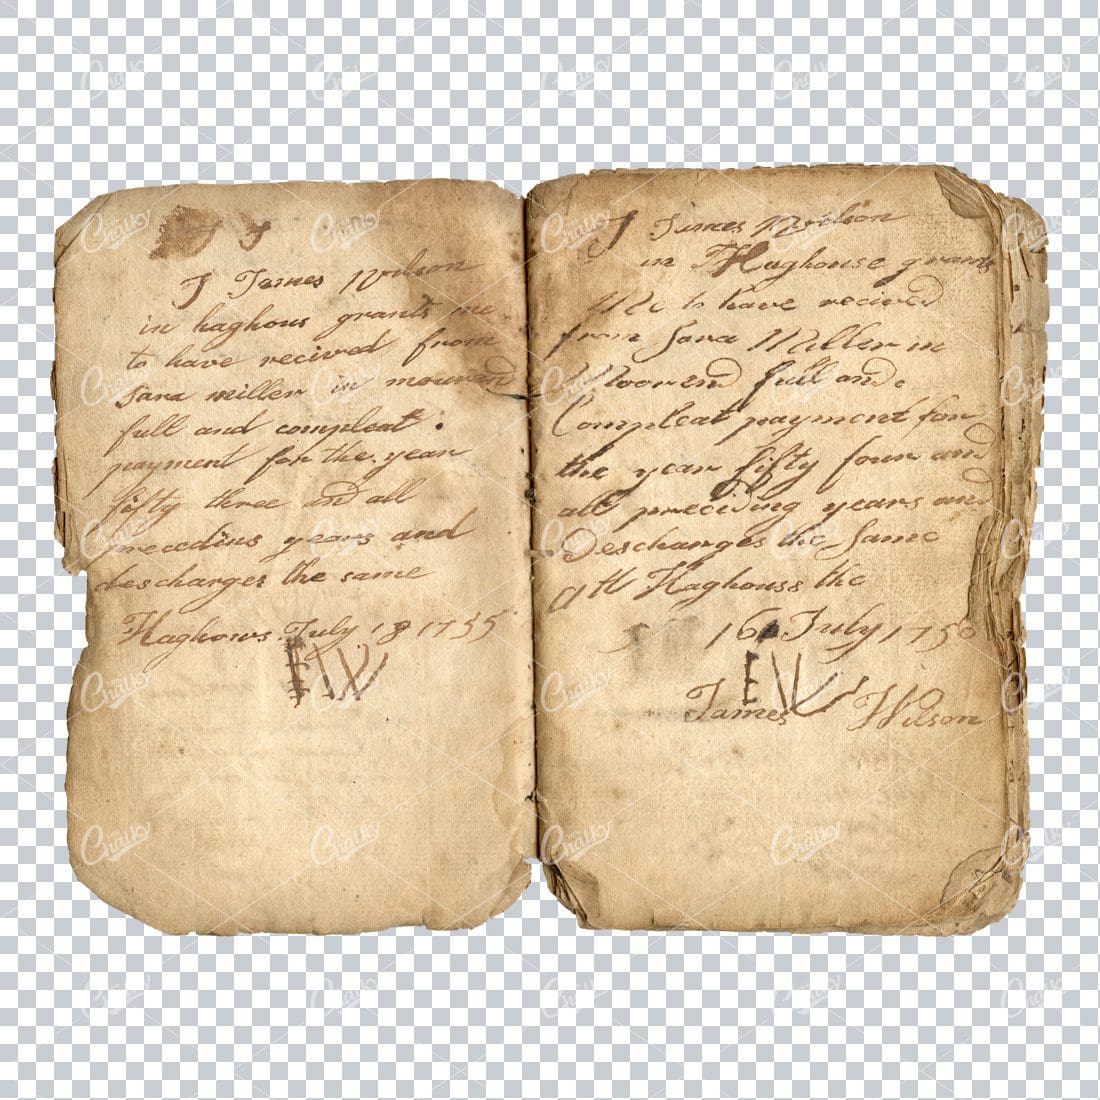 I I
I James Wilson
in haghous grants me
to have recived from
Sara miller in mourend
full and compleat
payment for the year
fifty three and all
preceding years and
descharges the same
Haghows July 18 1755
EW
I James Wilson
in Haghouse grants
Me to have recived
from Sara Miller in
Moorend full and
Compleat payment for
the year fifty four and
all preceding years and
Descharges the same
att Haghouss the
16 July 1756
EW
James Wilson
Chalky